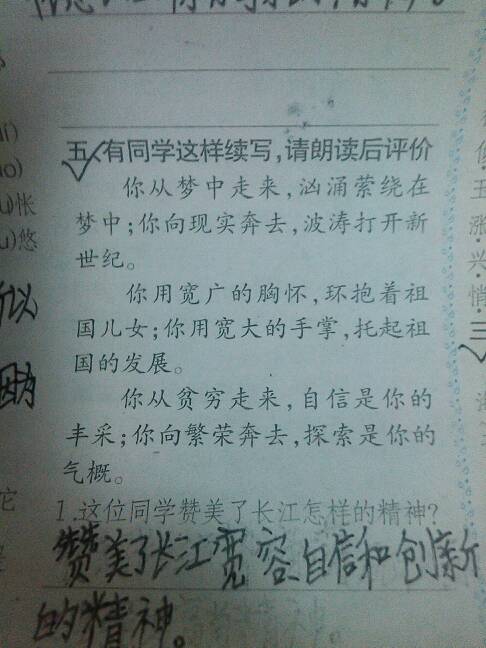 五、有同学这样续写,请朗读后评价
你从梦中走来,汹涌萦绕在
梦中;你向现实奔去,波涛打开新
世纪。
你用宽广的胸怀,环抱着祖
国儿女;你用宽大的手掌,托起祖
国的发展。
你从贫穷走来,自信是你的
丰采;你向繁荣奔去,探索是你的
气概。
1.这位同学赞美了长江怎样的精神?
赞美了长江宽容、自信和创新
的精神。
)怅
)悠
所以
因为